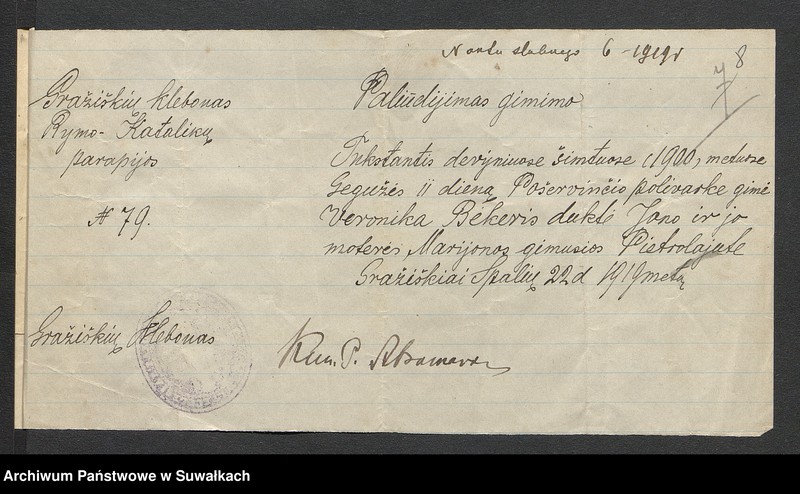 N aktu ślubnego 6 - 1919 r
7 8
Gražiškių klebonas
Rymo-Katalikų
parapijos
№ 79.
Paliūdijimas gimimo
Tukstantis devyniuose šimtuose (1900) metuose
Gegužės 11 dieną Pošervinčio polivarke gimė
Veronika Bekeris duktė Jono ir jo
moterės Marijonos gimusios Pietrolajutė
Gražiškiai Spalių 22 d 1919 metų
Gražiškių Klebonas
Kun. P.
Archiwum Państwowe w Suwałkach